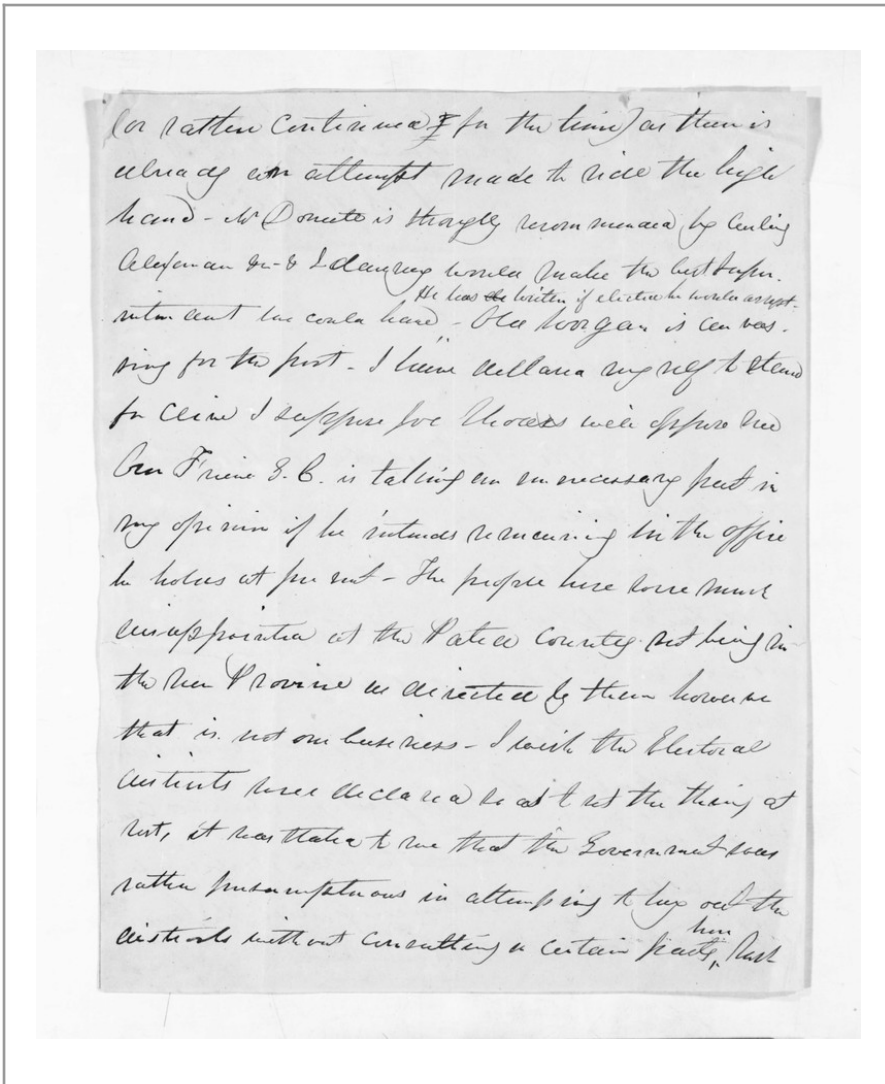 (or rather continued for the time) as there is
already an attempt made to ride the high
hand - Mr Donnett is strongly recommended by Curling
Alexander &c - & I daresay would make the best Super-
He has written if elected he would accept -
intendent we could have - Old Morgan is canvas-
sing for the post - I have declared myself to stand
for Clive I suppose Joe Rhodes will oppose me
Our Friend G. C. is taking an unnecessary part in
my opinion if he intends remaining in the office
he holds at present - The people here were much
disappointed at the Patea County not being in
the new Province as directed by them however
that is not our business - I wish the Electoral
districts were declared so as to set the thing at
rest, it was stated to me that the Government was
rather presumptuous in attempting to lay out the
here
districts without consulting a certain party, such